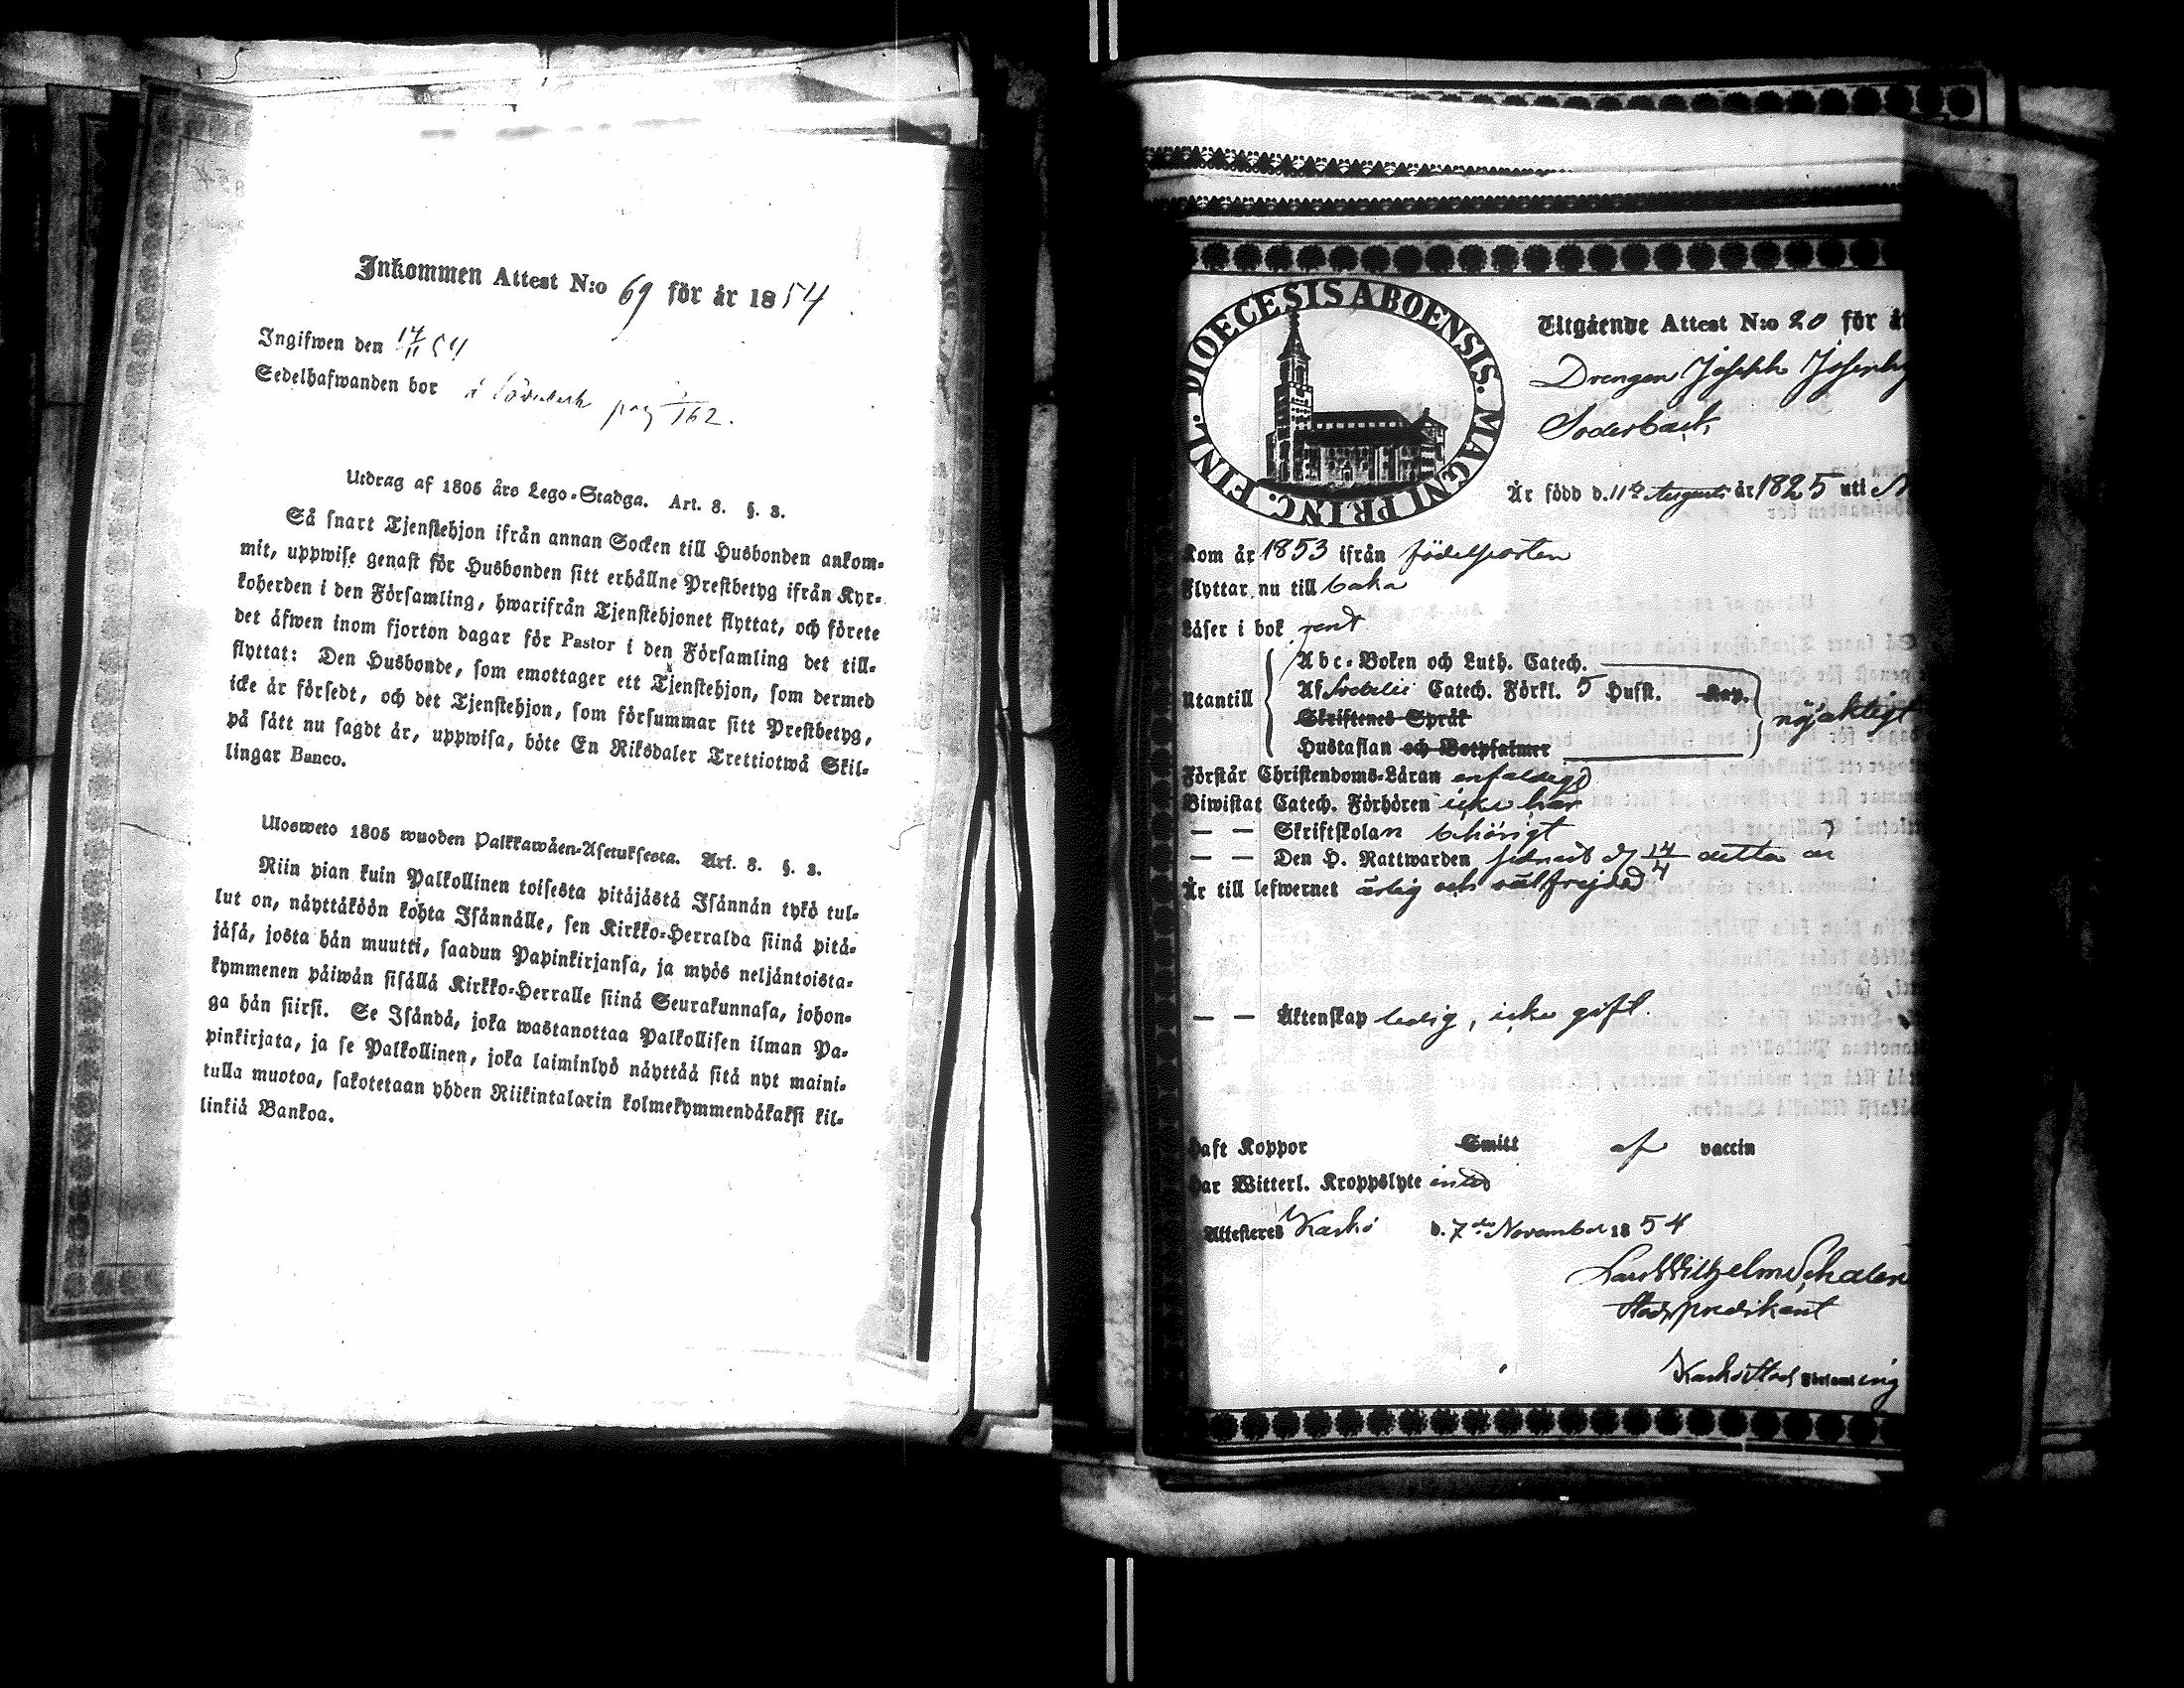 Inkommen Attest N:o 69 för år 1854
Ingifwen den 17/11 54
Sedelhafwanden bor å Söderback pag 162.
Utdrag af 1805 års Lego-Stadga. Art. 8. §. 3.
Så snart Tjenstehjon ifrån annan Socken till Husbonden ankom-
mit, uppwise genast för Husbonden sitt erhållne Prestbetyg ifrån Kyr-
koherden i den Församling, hwarifrån Tjenstehjonet flyttat, och förete
det äfwen inom fjorton dagar för Pastor i den Församling det till-
flyttat: Den Husbonde, som emottager ett Tjenstehjon, som dermed
icke är försedt, och det Tjenstehjon, som försummar sitt Prestbetyg,
på sätt nu sagdt är, uppwisa, böte En Riksdaler Trettiotwå Skil-
lingar Banco.
Ulosweto 1805 wuoden Palkkawäen-Asetuksesta. Art. 8. §. 3.
Niin pian kuin Palkollinen toisesta pitäjästä Isännän tykö tul-
lut on, näyttäköön kohta Isännälle, sen Kirkko-Herralda siinä pitä-
jäsä, josta hän muutti, saadun Papinkirjansa, ja myös neljäntoista-
kymmenen päiwän sisällä Kirkko-Herralle siinä Seurakunnasa, johon-
ga hän siirsi. Se Isändä, joka wastanottaa Palkollisen ilman Pa-
pinkirjata, ja se Palkollinen, joka laiminlyö näyttää sitä nyt maini-
tulla muotoa, sakotetaan yhden Riikintalarin kolmekymmendäkaksi kil-
linkiä Bankoa.
FINL. DIOECESIS ABOENSIS. MAGNI PRINC.
Utgående Attest N:o 20 för å
Drengen Joseph Josephs
Söderback,
Är född d. 11te Augusti år 1825 uti
Kom år 1853 ifrån födelseorten
Flyttar nu till baka
Läser i bok rent
Utantill
Abc-Boken och Luth. Catech.
Af Svebelii Catech. Förkl. 5 Hufst. Kap.
Skriftenes Språk
Hustaflan och Botpsalmer
nöjaktigt
Förstår Christendoms-Läran enfaldigt
Biwistat Catech. Förhören icke här
— — Skriftskolan behörigt
— — Den H. Nattwarden sednast d 14/4 detta år
Är till lefwernet ärlig och välfrejdad
— — Äktenskap ledig, icke gift.
Haft Koppor Smitt af vaccin
Har Witterl. Kroppslyte intet
Attesteres Kaskö d. 7de November 1854
Lars Wilhelm Schalin
Stadspredikant
Kaskö Stads Församling